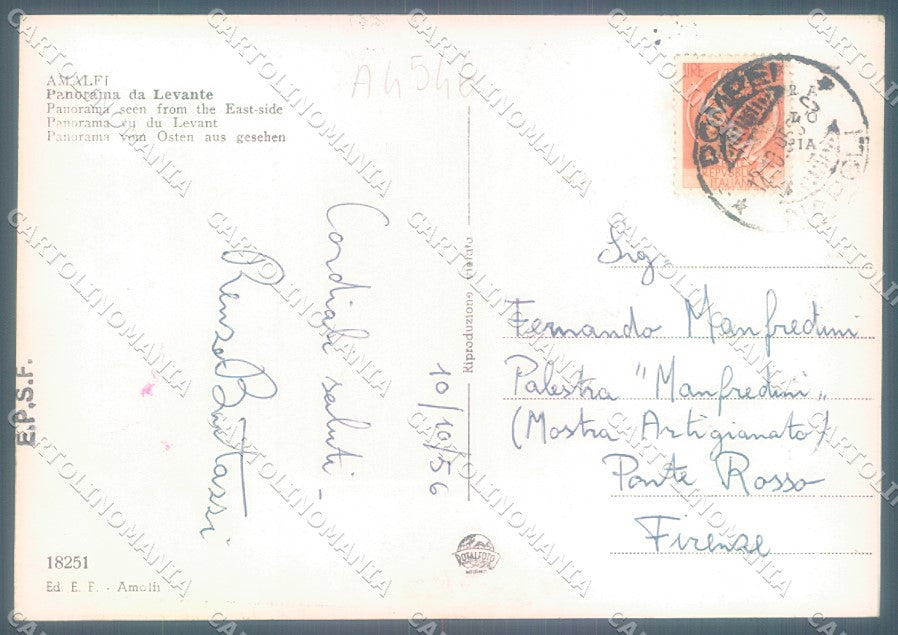 AMALFI
Panorama da Levante
Panorama seen from the East-side
Panorama vu du Levant
Panorama vom Osten aus gesehen
A4548
LIRE
REPVBBLICA
ITALIANA
POMPEI
NAPOLI
Cordiali saluti -
Renzo
10/10/56
Riproduzione vietata
Sig
Fernando Manfredini
Palestra "Manfredini"
(Mostra Artigianato)
Ponte Rosso
Firenze
E.P.S.F.
18251
Ed. E. F. - Amalfi
ROTALFOTO
CARTOLINOMANIA